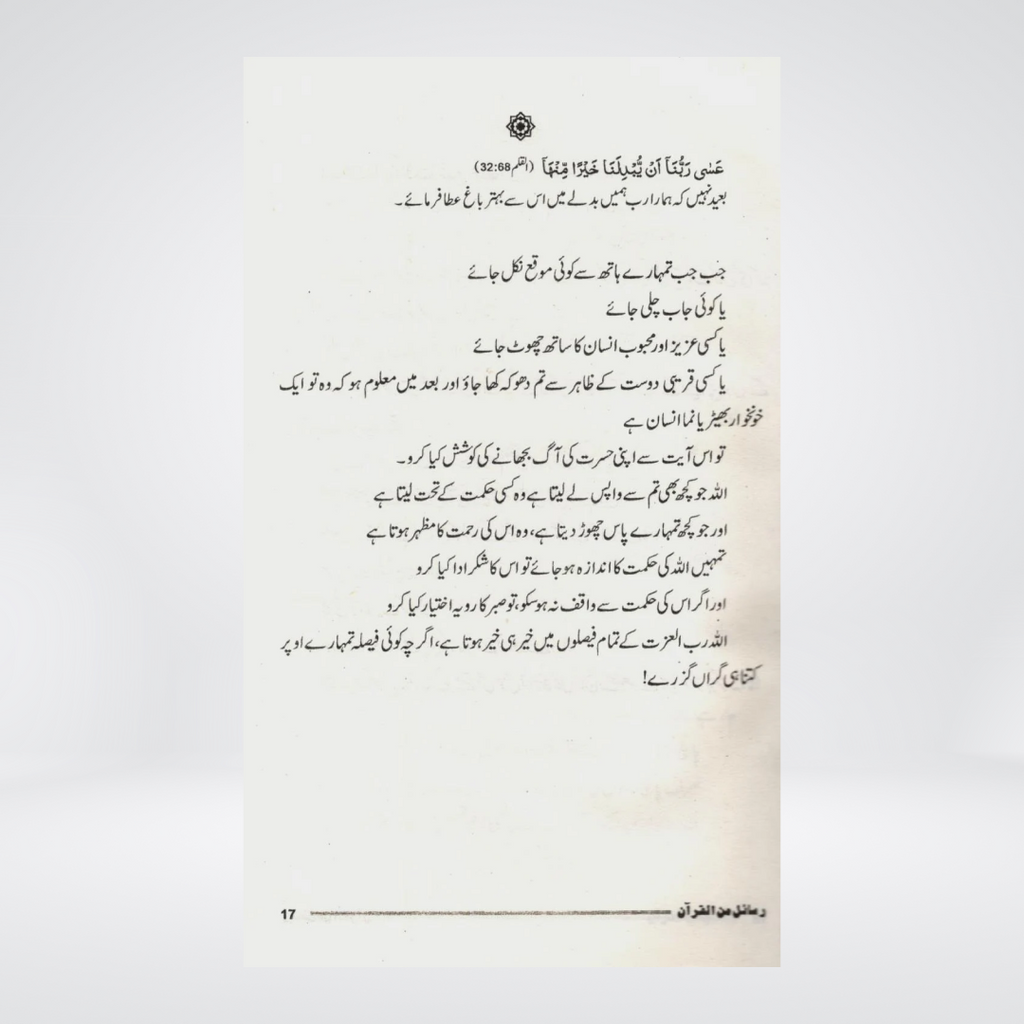 عَسٰى رَبُّنَاۤ اَنْ يُّبْدِلَنَا خَيْرًا مِّنْهَاۤ (القلم 32:68)
بعید نہیں کہ ہمارا رب ہمیں بدلے میں اس سے بہتر باغ عطا فرمائے ۔
جب جب تمہارے ہاتھ سے کوئی موقع نکل جائے
یا کوئی جاب چلی جائے
یا کسی عزیز اور محبوب انسان کا ساتھ چھوٹ جائے
یا کسی قریبی دوست کے ظاہر سے تم دھوکہ کھا جاؤ اور بعد میں معلوم ہو کہ وہ تو ایک
خونخوار بھیڑیا نما انسان ہے
تو اس آیت سے اپنی حسرت کی آگ بجھانے کی کوشش کیا کرو ۔
اللہ جو کچھ بھی تم سے واپس لے لیتا ہے وہ کسی حکمت کے تحت لیتا ہے
اور جو کچھ تمہارے پاس چھوڑ دیتا ہے، وہ اس کی رحمت کا مظہر ہوتا ہے
تمہیں اللہ کی حکمت کا اندازہ ہو جائے تو اس کا شکر ادا کیا کرو
اور اگر اس کی حکمت سے واقف نہ ہو سکو، تو صبر کا رویہ اختیار کیا کرو
اللہ رب العزت کے تمام فیصلوں میں خیر ہی خیر ہوتا ہے، اگرچہ کوئی فیصلہ تمہارے اوپر
کتنا ہی گراں گزرے!
رسائل من القرآن 17